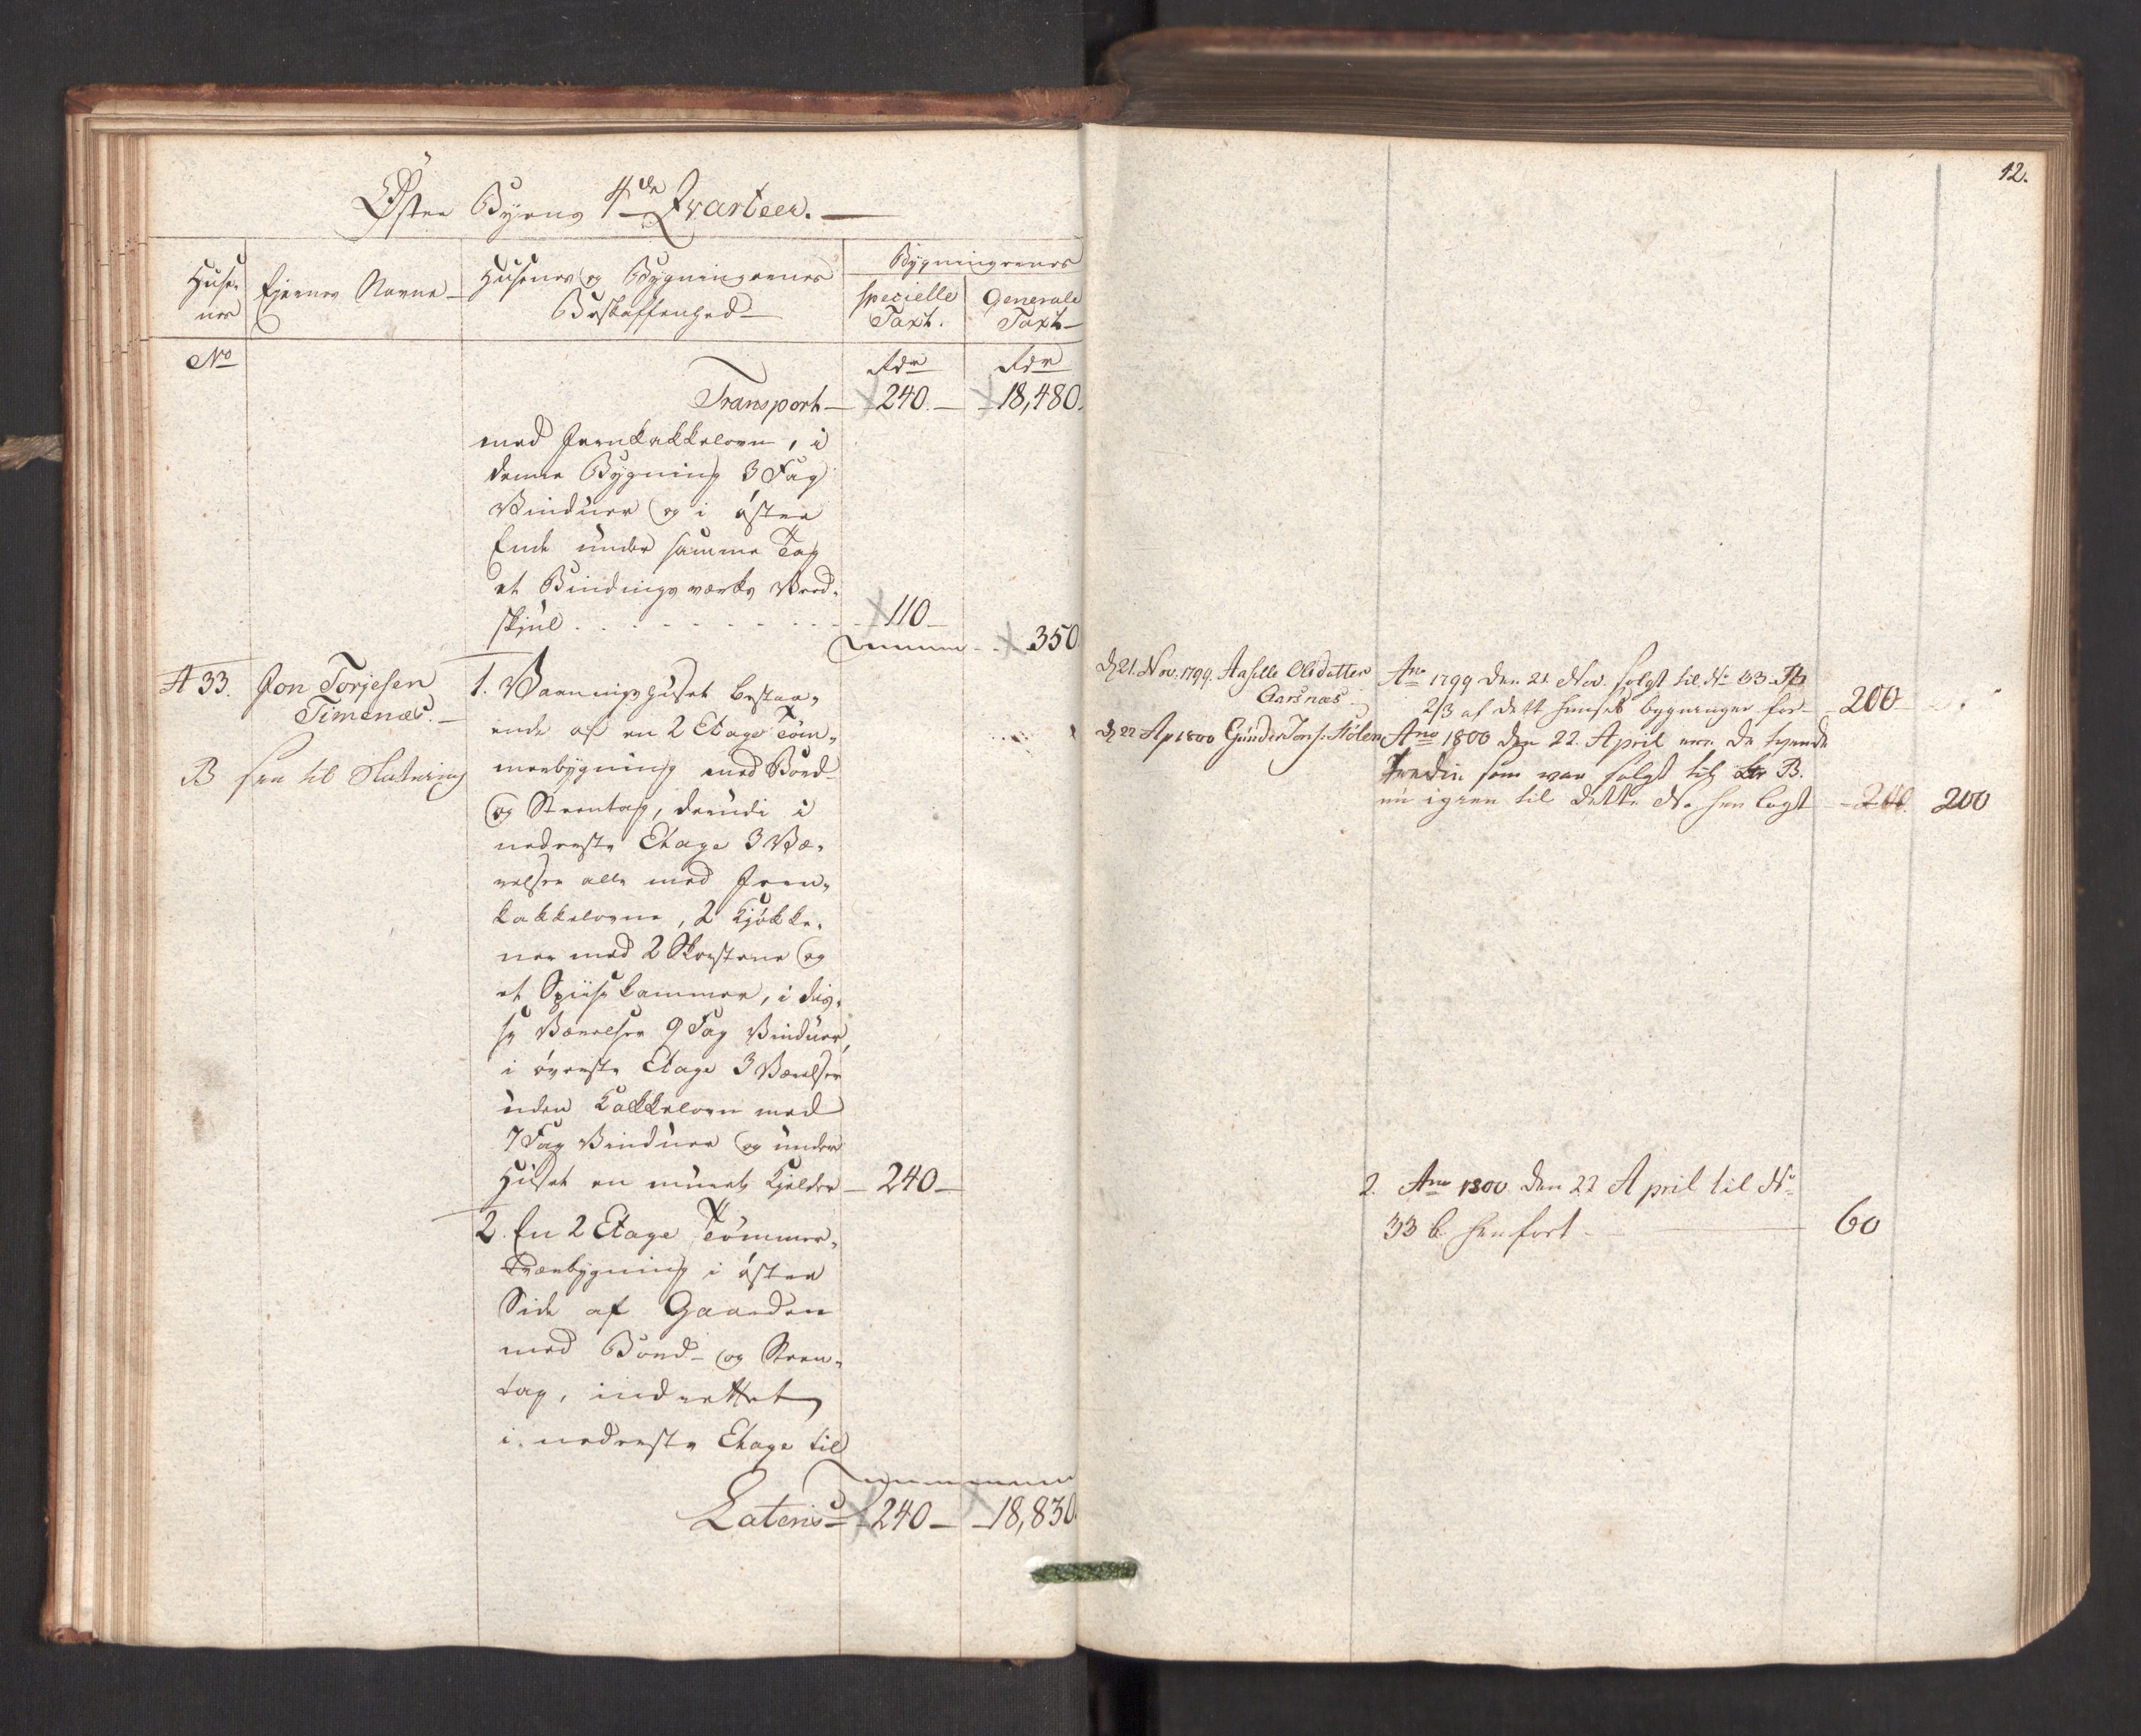 Øster Byens 4de Qvarteer.
Huse-
nes
Ejernes Navne
Husenes og Bygningernes
Beskaffenhed
Bygningernes
specielle
Taxt.
Generale
Taxt
No
Rdr
Rdr
Transport 240. 18,480.
med Jernkakkelovn, i
denne Bygning 3 Fag
Vinduer og i øster
Ende under samme Tag
et Bindingsværks Ved-
skjul 110
350
A 33. Jon Torjesen
Timenæs.
B hen til Slutning
1. Vaaningshuset bestaa-
ende af en 2 Etage Töm-
merbygning med Bord-
og Steentag, derudi i
nederste Etage 3 Væ-
relser alle med Jern-
kakkelovne, 2 Kjökke-
ner med 2 Skorstene og
et Spiisekammer, i dis-
se Værelser 9 Fag Vinduer,
i överste Etage 3 Værelser
uden Kakkelovn med
7 Fag Vinduer og under
Huset en muret Kjelder 240
2. En 2 Etage Tömmer-
Tværbygning i øster
Side af Gaarden
med Bord- og Steen-
tag, indrettet
i nederste Etage til
Lateris 240 18,830.
12.
d 21. Nov. 1799. Aasille Olsdatter
Aarsnæs
Ano 1799 den 21 Nov. solgt til No 33 B
2/3 af dette Huuses bygninger for 200
d 22 Ap 1800 Gunder Jons. Stölen
Ano 1800 den 22. April ere de tvende
Tredie som var solgt til Ltr B.
nu igien til dette No hen lagt 200. 200
2. Ano 1800 den 22 April til No
33 b henfört 60